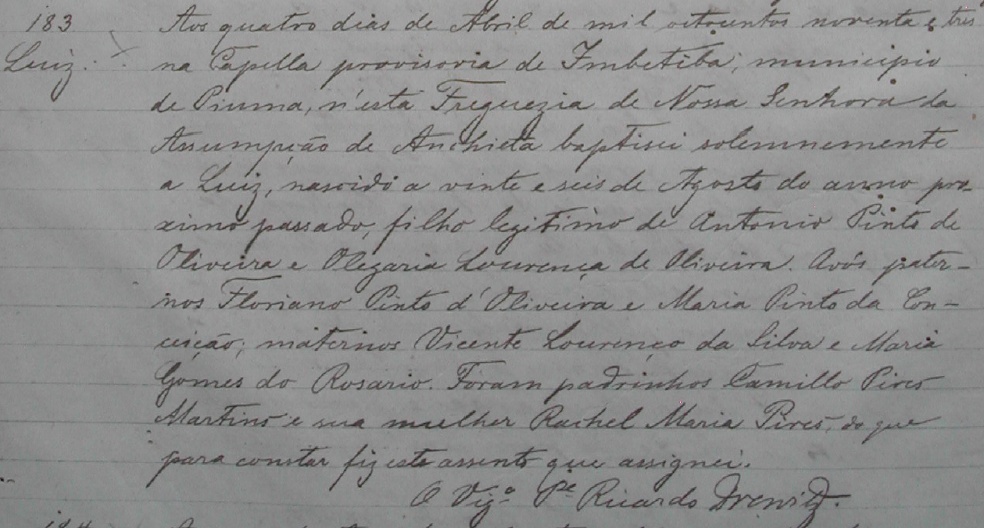 183 Aos quatro dias de Abril de mil oitocentos noventa e tres
Luiz. na Capella provisoria de Imbetiba, municipio
de Piuma, n'esta Freguezia de Nossa Senhora da
Assumpção de Anchieta baptisei solemnemente
a Luiz, nascido a vinte e seis de Agosto do anno pro-
ximo passado, filho legitimo de Antonio Pinto de
Oliveira e Olegaria Lourença de Oliveira. Avós pater-
nos Floriano Pinto d'Oliveira e Maria Pinto da Con-
ceição; maternos Vicente Lourenço da Silva e Maria
Gomes do Rosario. Foram padrinhos Camillo Pires
Martins e sua mulher Rachel Maria Pires, do que
para constar fiz este assento que assignei.
O Vigº Pe Ricardo